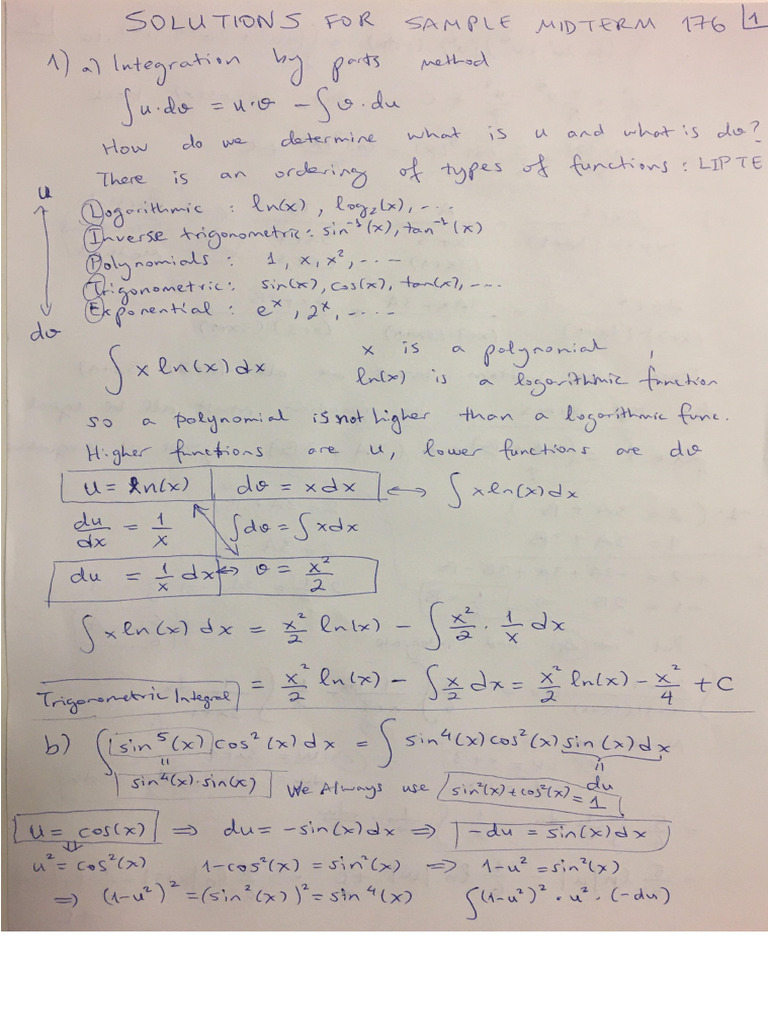 SOLUTIONS FOR SAMPLE MIDTERM 176 1
1) a) Integration by parts method
∫u·dv = u·v − ∫v·du
How do we determine what is u and what is dv?
There is an ordering of types of functions : LIPTE
u
Logarithmic : ln(x), log₂(x), ...
Inverse trigonometric : sin⁻¹(x), tan⁻¹(x)
Polynomials : 1, x, x², ...
Trigonometric : sin(x), cos(x), tan(x), ...
Exponential : eˣ, 2ˣ, ...
dv
∫ x ln(x) dx x is a polynomial,
ln(x) is a logarithmic function
so a polynomial is not higher than a logarithmic func.
Higher functions are u, lower functions are dv
u = ln(x) dv = x dx ↔ ∫ x ln(x) dx
du/dx = 1/x ∫dv = ∫x dx
du = 1/x dx ↔ v = x²/2
∫ x ln(x) dx = x²/2 ln(x) − ∫ x²/2 · 1/x dx
Trigonometric Integral = x²/2 ln(x) − ∫ x/2 dx = x²/2 ln(x) − x²/4 + C
b) ∫ sin⁵(x) cos²(x) dx = ∫ sin⁴(x) cos²(x) sin(x) dx
= sin⁴(x)·sin(x) We Always use sin²(x) + cos²(x) = 1 = du
u = cos(x) ⇒ du = −sin(x) dx ⇒ −du = sin(x) dx
⇓
u² = cos²(x) 1−cos²(x) = sin²(x) ⇒ 1−u² = sin²(x)
⇒ (1−u²)² = (sin²(x))² = sin⁴(x) ∫(1−u²)² · u² · (−du)